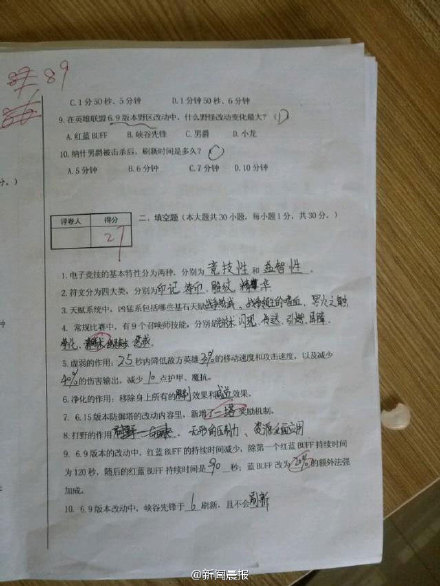 89
C. 1分50秒、5分钟 D. 1分钟50秒、6分钟
9. 在英雄联盟6.9版本野区改动中，什么野怪改动变化最大？ ( D )
A. 红蓝BUFF B. 峡谷先锋 C. 男爵 D. 小龙
10. 纳什男爵被击杀后，刷新时间是多久？ ( C )
A. 5分钟 B. 6分钟 C. 7分钟 D. 10分钟
分。)
评卷人 得分
27
二、填空题（本大题共30小题，每小题1分，共30分。）
1. 电子竞技的基本特性分为两种，分别为 竞技性 和 益智性 。
2. 符文分为四大类，分别为 印记 符印 雕纹 精华
3. 天赋系统中，凶猛系包括哪些基石天赋
4. 常规比赛中，有9个召唤师技能，分别是 闪现
5. 虚弱的作用：2.5秒内降低敌方英雄 的移动速度和攻击速度，以及减少
40%的伤害输出，减少10点护甲、魔抗。
6. 净化的作用：移除身上所有的 效果和 效果。
7. 6.15版本防御塔的改动内容里，新增了一塔奖励机制。
8. 打野的作用
9. 6.9版本的改动中，红蓝BUFF的持续时间减少，除第一个红蓝BUFF持续时间
为120秒，随后的红蓝BUFF持续时间是 90 秒；蓝BUFF改为 的额外法强
加成。
10. 6.9版本改动中，峡谷先锋于 6 刷新，且不会刷新
@新闻晨报